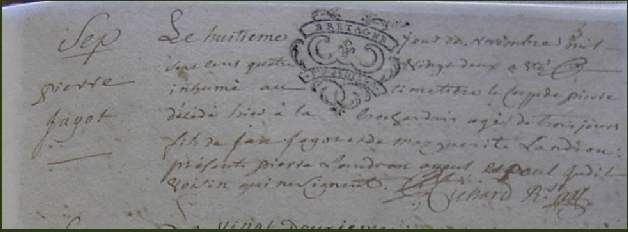 Sep
pierre
fagot
BRETAGNE
Le huitieme jour de novembre mil
sept cens quatre vingt deux a eté
inhumé au cimetiere le corps de pierre
décédé hier à la agé de trois jours
fils de jan fagot et de marguerite Landrau
présents pierre Landrau ayeul et paul
voisin qui ne signent. Richard Rr